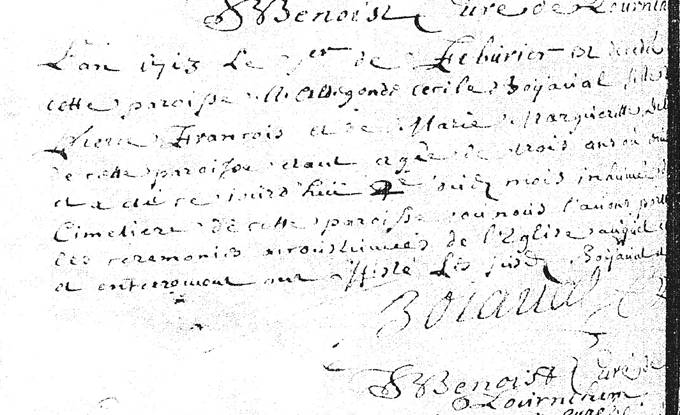 Benoist Curé de Lournin
L'an 1713 le 1er de Feburier est decedé
cette paroisse Aldegonde Cecile Boijaual fille
Pierre Francois et de Marie Marguerite Del
de cette paroisse étant agée de trois ans ou
et a été ce jourd'huy dud mois inhumée
Cimetiere de cette paroisse ou nous l'auons porté
les ceremonies accoustumées de l'Eglise auquel
et enterrement ont assisté les susd Boijaual et
Boiaual
Benoist Curé de
Lournichem